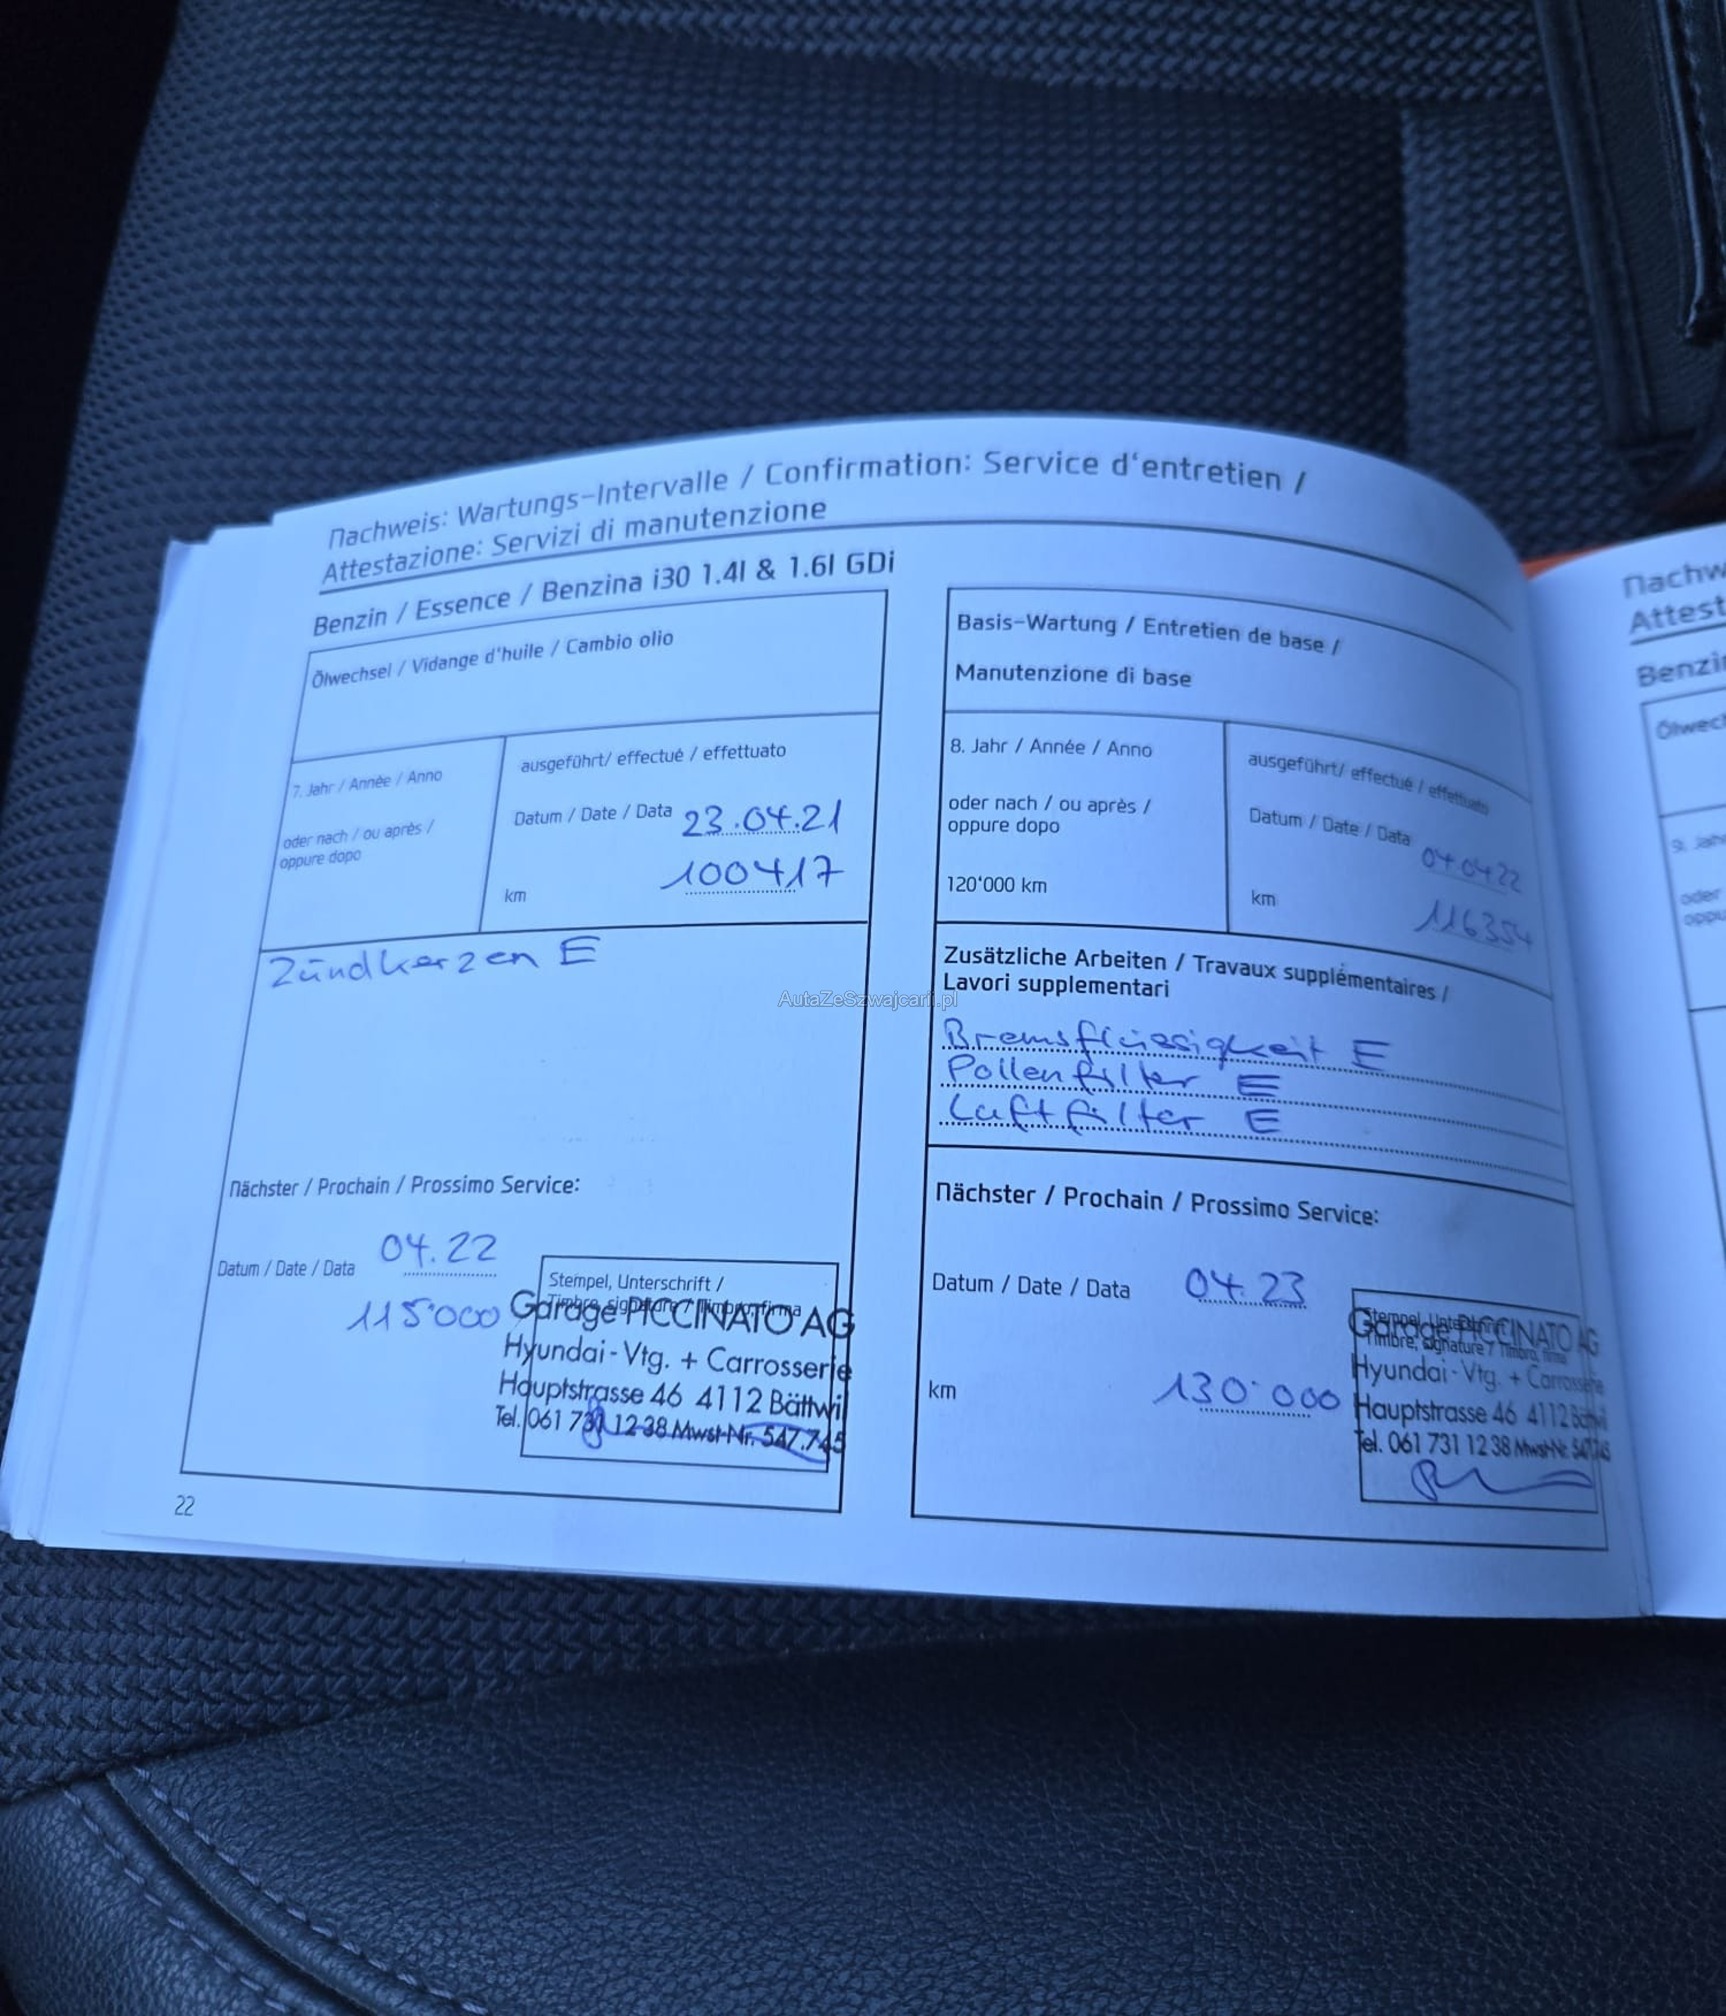 Nachweis: Wartungs-Intervalle / Confirmation: Service d'entretien /
Attestazione: Servizi di manutenzione
Benzin / Essence / Benzina i30 1.4l & 1.6l GDi
Ölwechsel / Vidange d'huile / Cambio olio
7. Jahr / Année / Anno
oder nach / ou après /
oppure dopo
ausgeführt/ effectué / effettuato
Datum / Date / Data 23.04.21
km 100417
Zündkerzen E
Nächster / Prochain / Prossimo Service:
Datum / Date / Data 04.22
115'000
Stempel, Unterschrift /
Timbre, signature / Timbro, firma
Garage PICCINATO AG
Hyundai - Vtg. + Carrosserie
Hauptstrasse 46 4112 Bättwil
Tel. 061 731 12 38 Mwst-Nr. 547.745
22
Basis-Wartung / Entretien de base /
Manutenzione di base
8. Jahr / Année / Anno
oder nach / ou après /
oppure dopo
120'000 km
ausgeführt/ effectué / effettuato
Datum / Date / Data 04.04.22
km 116354
Zusätzliche Arbeiten / Travaux supplémentaires /
Lavori supplementari
Bremsflüssigkeit E
Pollenfilter E
Luftfilter E
Nächster / Prochain / Prossimo Service:
Datum / Date / Data 04.23
km 130'000
Stempel, Unterschrift /
Timbre, signature / Timbro, firma
Garage PICCINATO AG
Hyundai - Vtg. + Carrosserie
Hauptstrasse 46 4112 Bättwil
Tel. 061 731 12 38 Mwst-Nr. 547.745
Nachw
Attest
Benzin
Ölwec
9. Jahr
oder
oppu
AutaZeSzwajcarii.pl